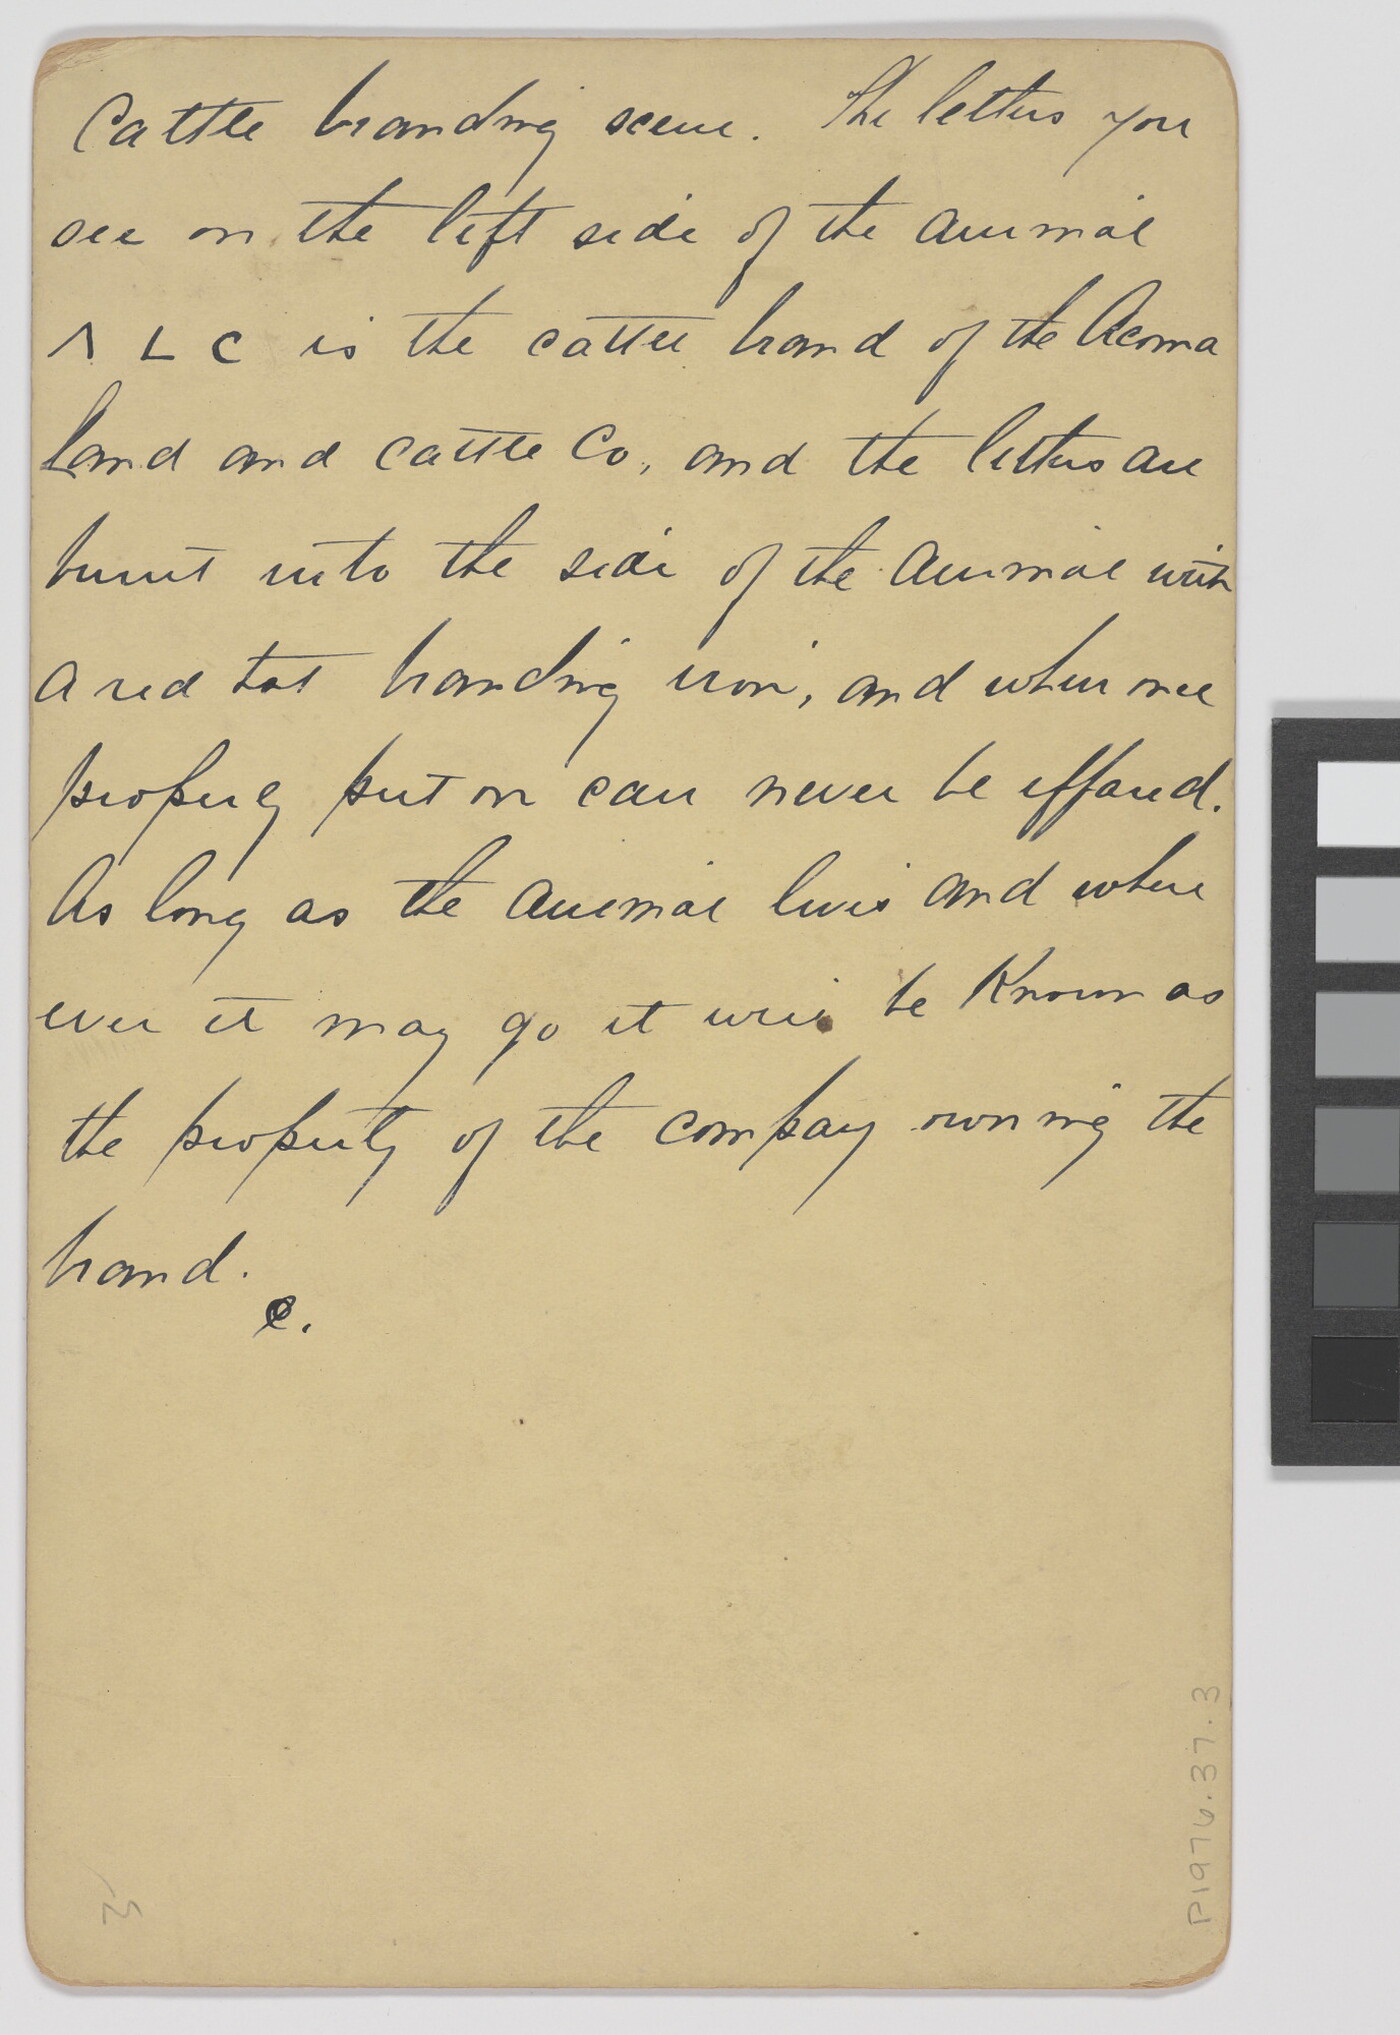 Cattle branding scene. The letters you
see on the left side of the animal
Λ L C is the cattle brand of the Acoma
Land and cattle Co, and the letters are
burnt into the side of the animal with
a red hot branding iron, and when once
properly put on can never be effaced.
As long as the animal lives and where
ever it may go it will be known as
the property of the company owning the
brand.
C.
P1976.37.3